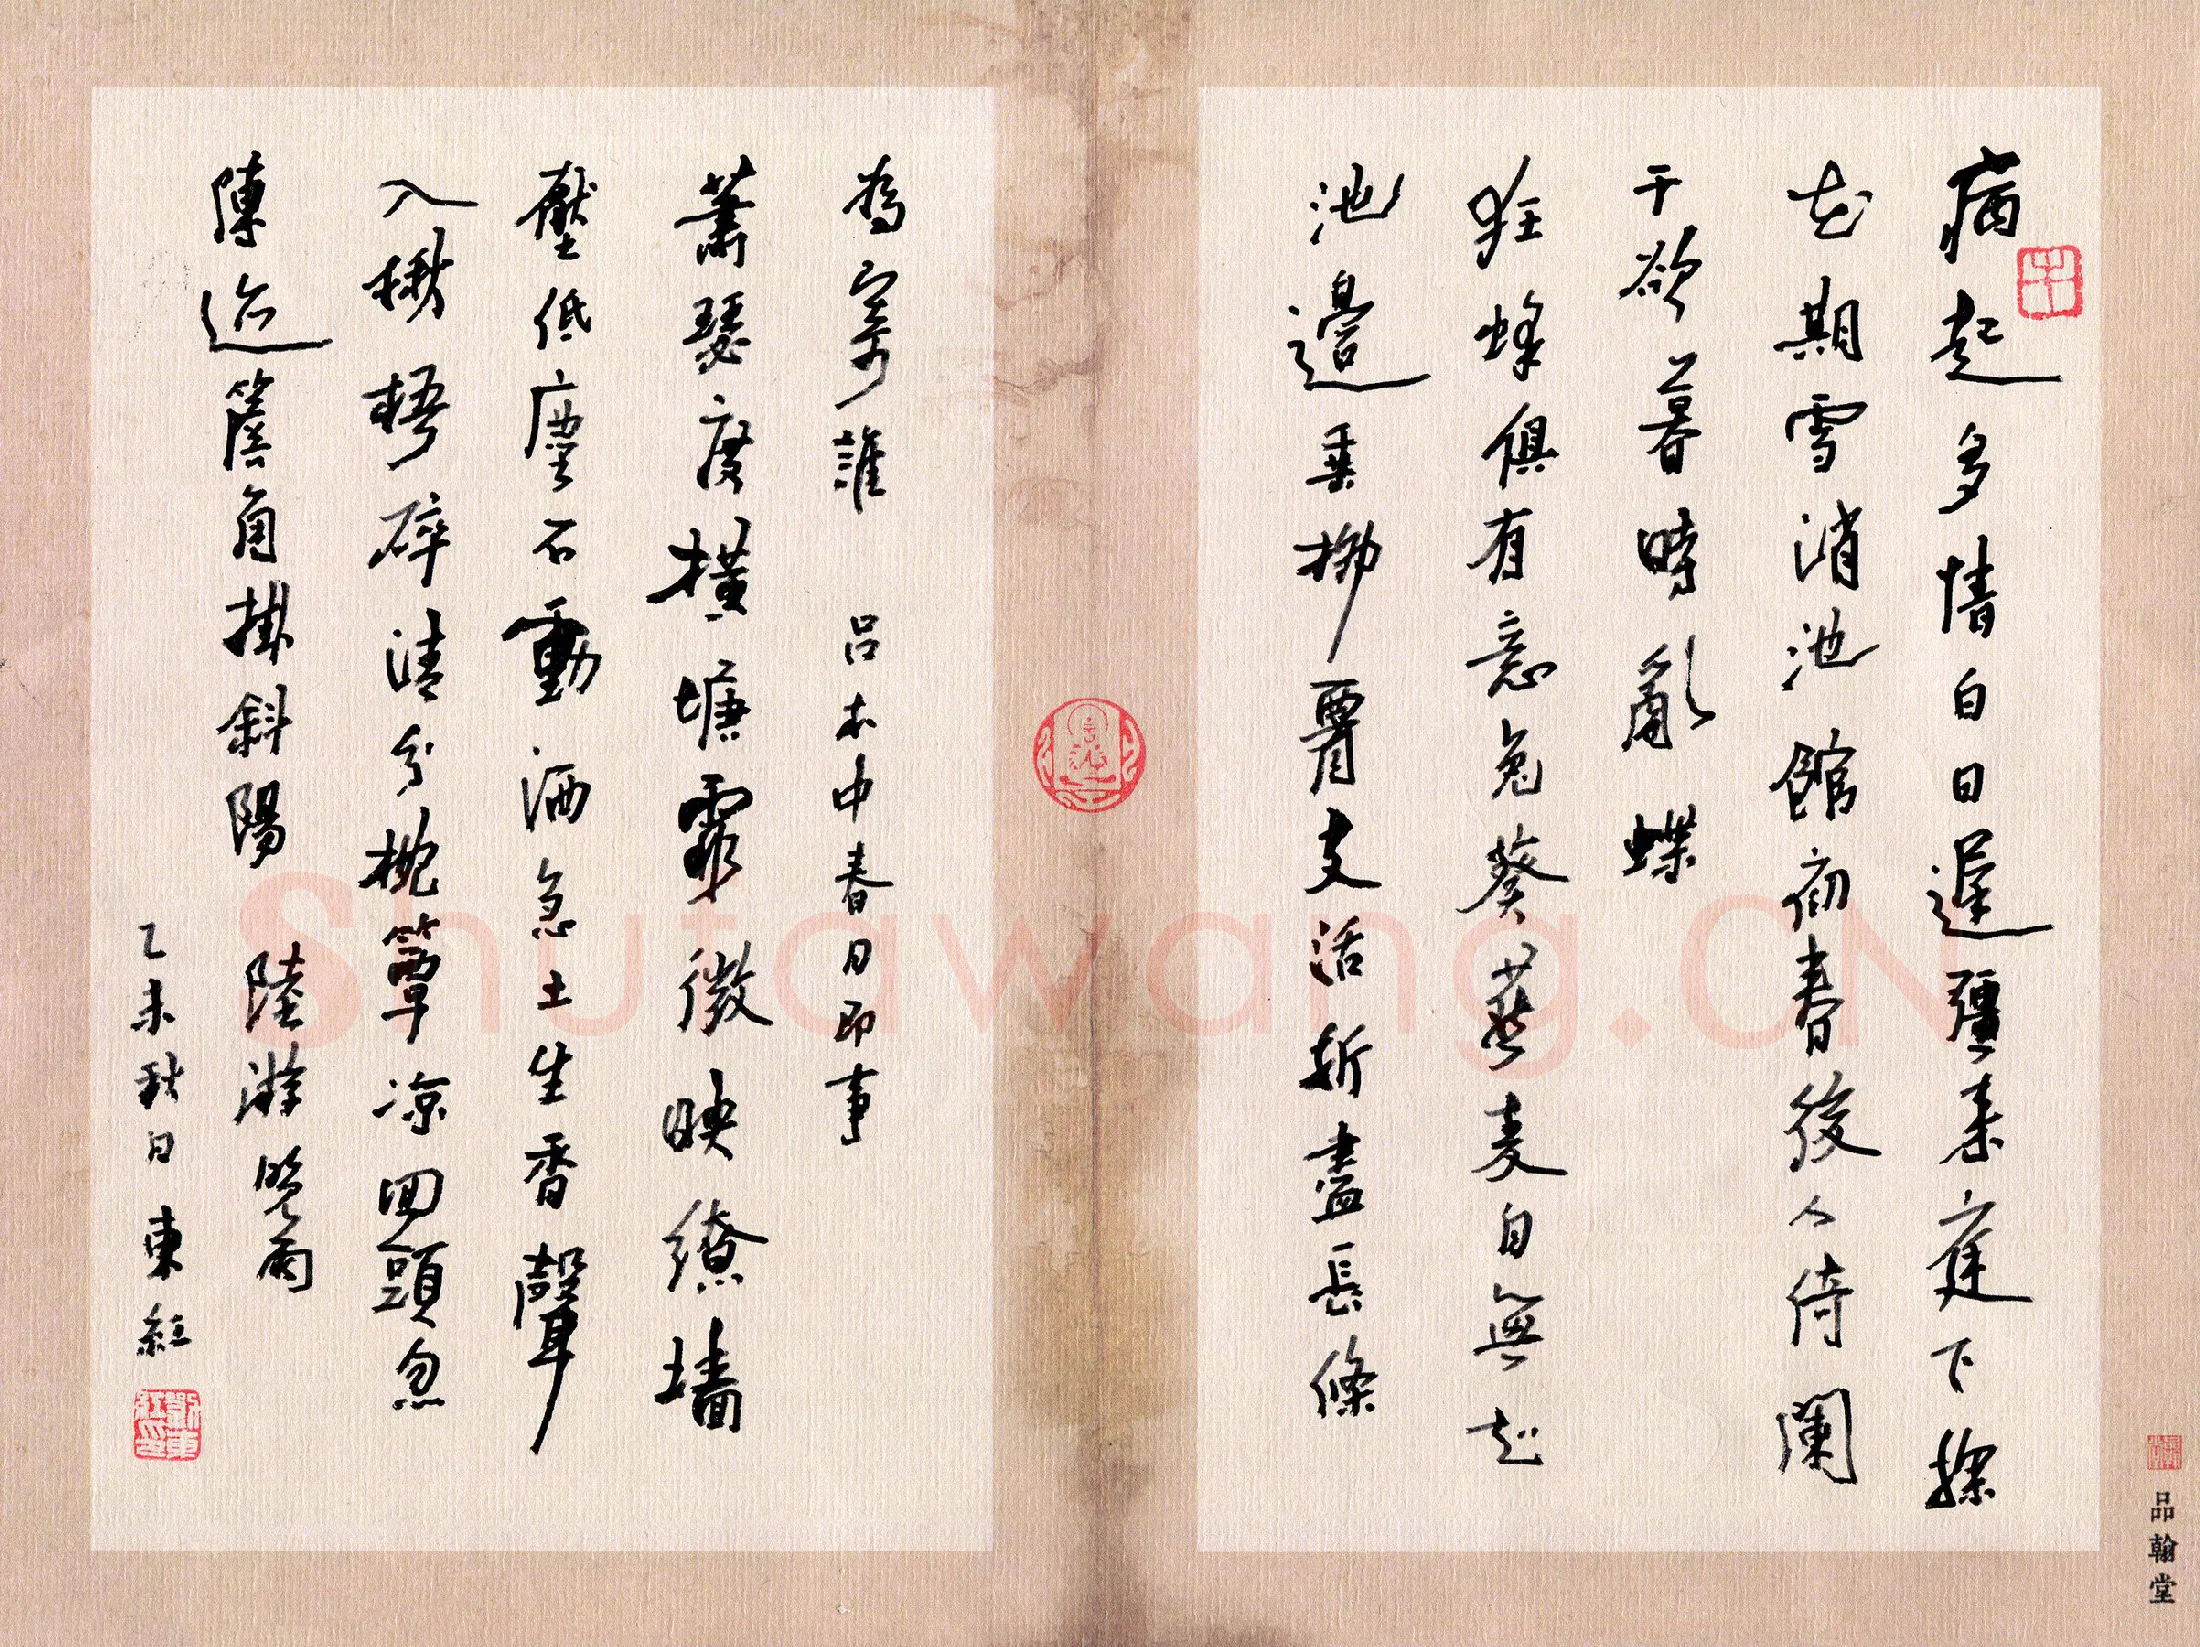 病起多情白日遲彊来庭下探
花期雪消池館初春後人倚闌
干欲暮時亂蝶
狂蜂俱有意兔葵燕麦自無花
池邊垂柳腰支活折盡長條
為寄誰 吕本中春日即事
蕭瑟度横塘霏微映繚墙
壓低塵不動洒急土生香聲
入楸梧碎清分枕簟凉回頭忽
陳迹簷角掛斜陽 陸游雙雨
乙未秋日東紅
品翰堂
Shufawang.CN